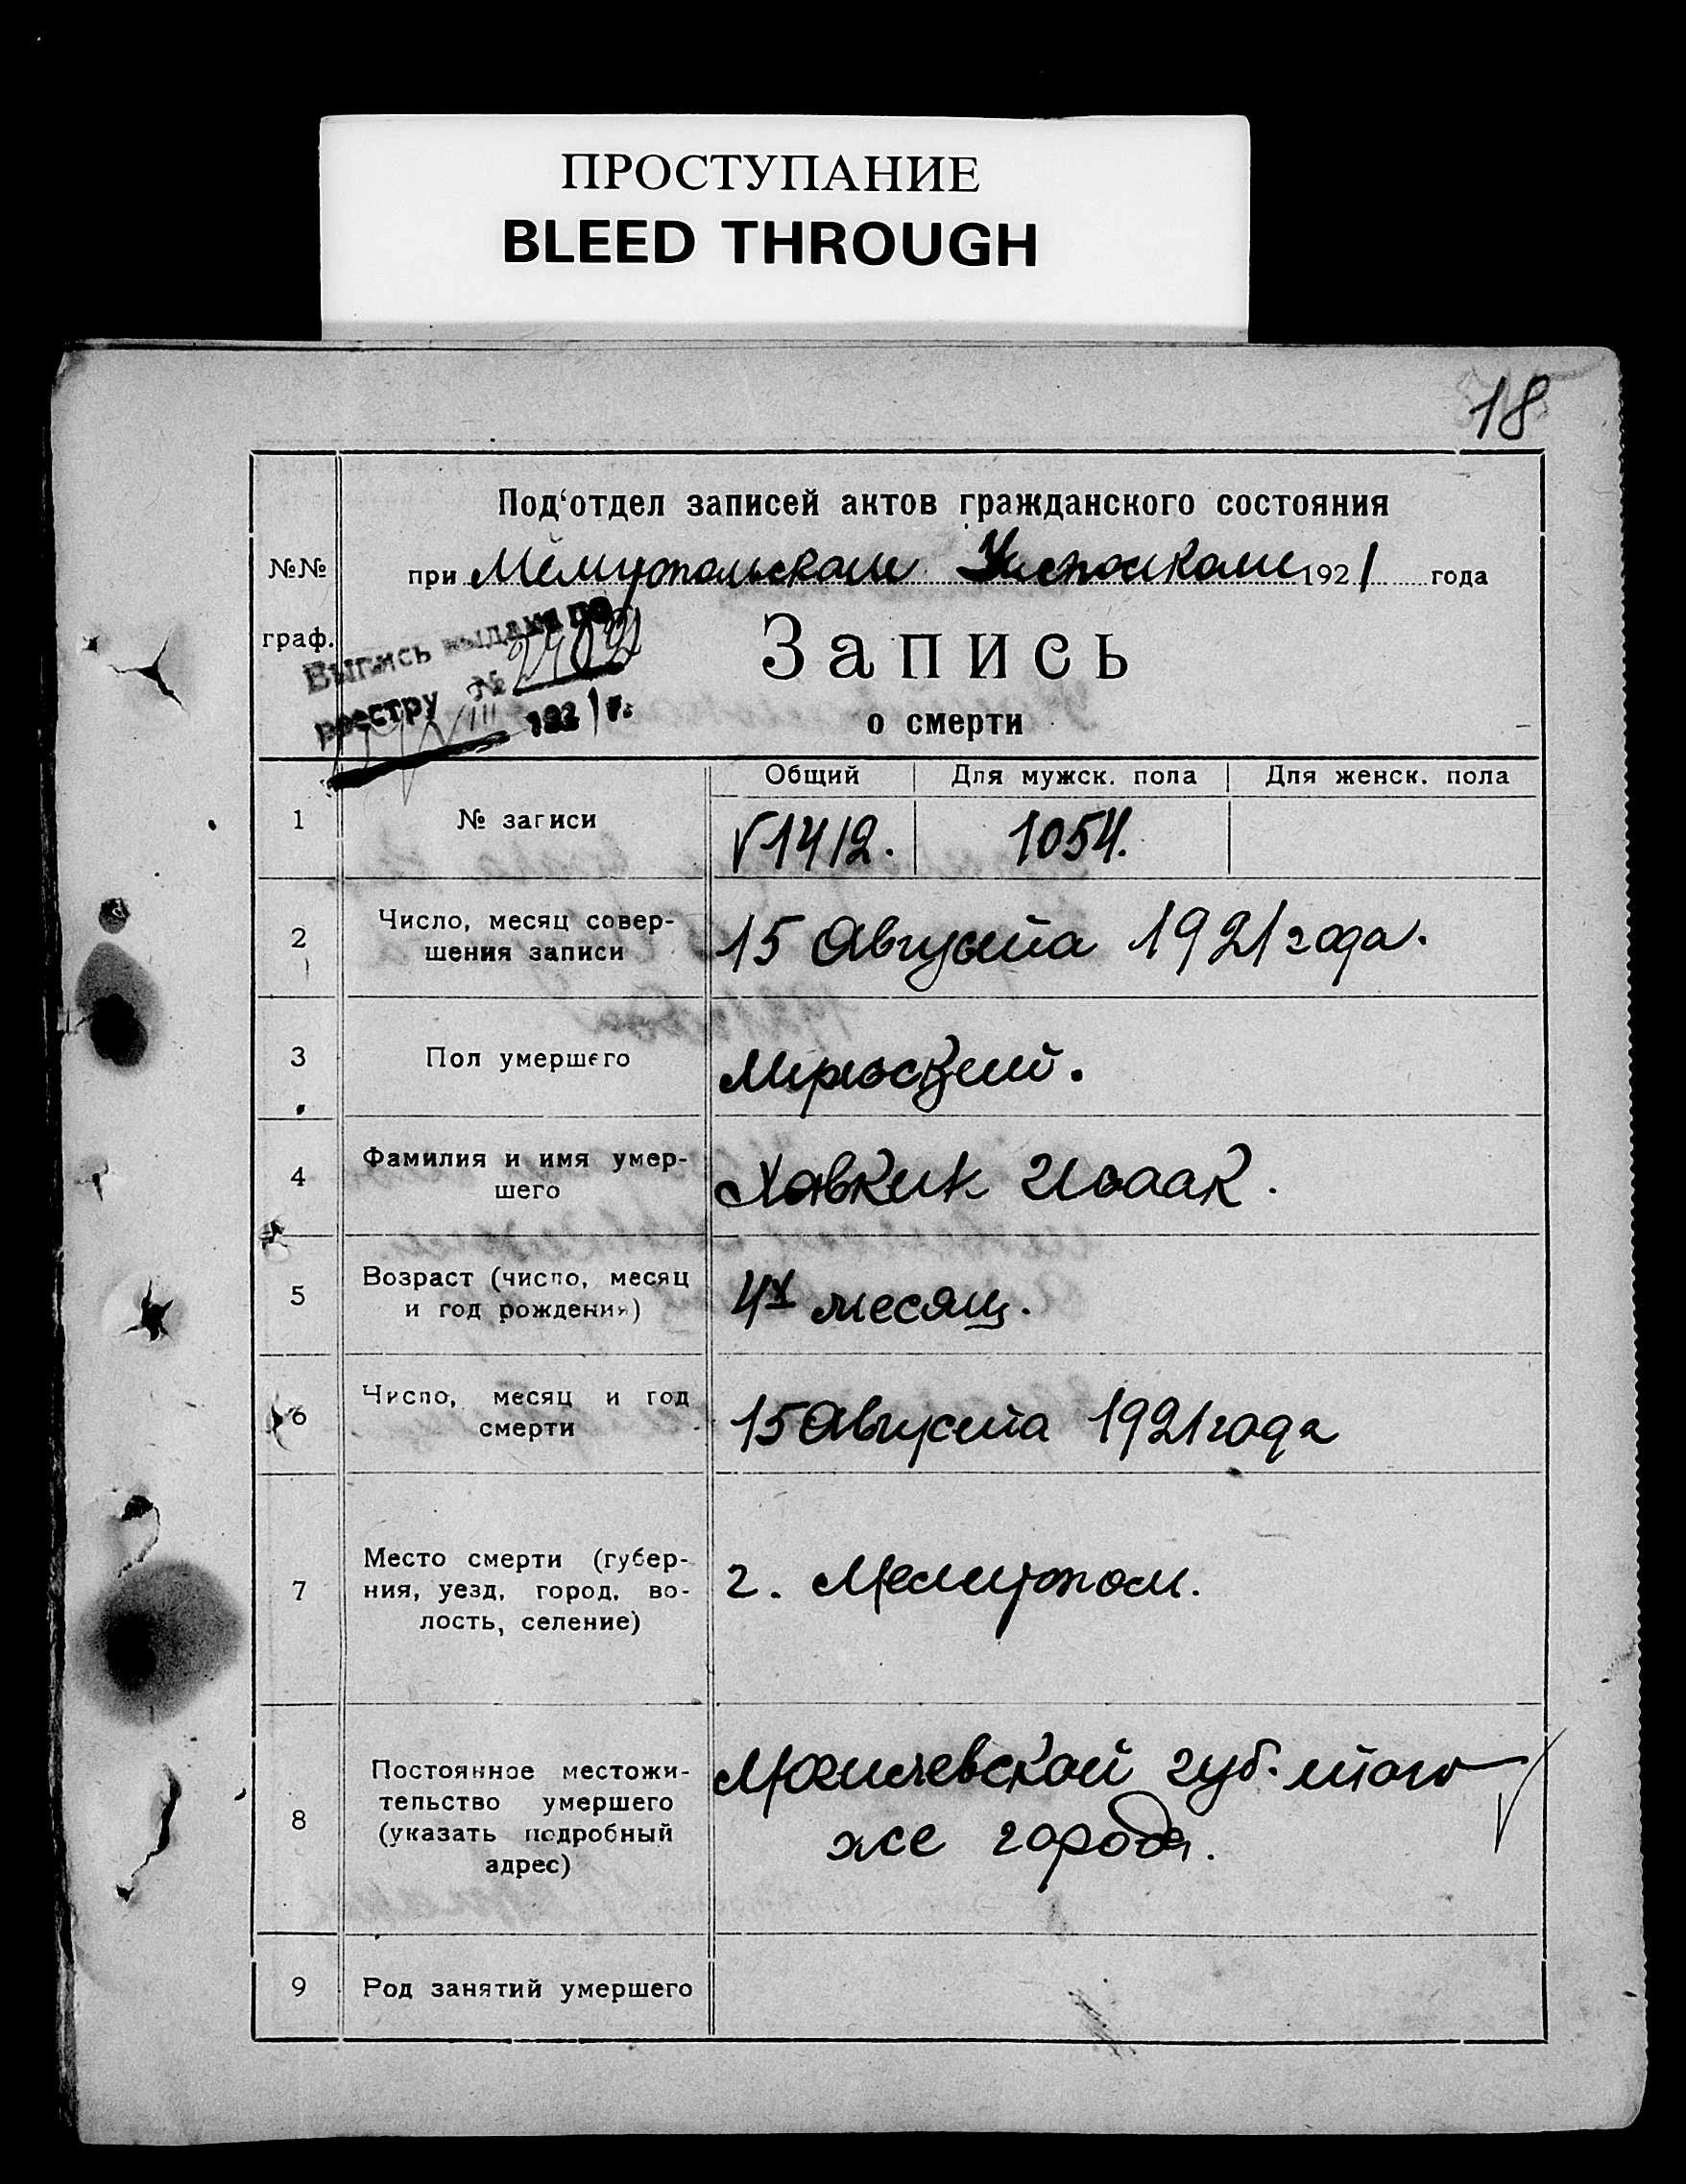 ПРОСТУПАНИЕ
BLEED THROUGH
18
Под‘отдел записей актов гражданского состояния
№№ граф.
при Мелитопольском Уисполкоме 1921 года
Выпись выдана по
реестру №
VIII 1921 г.
Запись
о смерти
Общий Для мужск. пола Для женск. пола
1 № записи 1412. 1054.
2 Число, месяц совер-
шения записи 15 Августа 1921 года.
3 Пол умершего Мужский.
4 Фамилия и имя умер-
шего Хавкин Исаак.
5 Возраст (число, месяц
и год рождения) 4х месяц.
6 Число, месяц и год
смерти 15 Августа 1921 года
7 Место смерти (губер-
ния, уезд, город, во-
лость, селение) г. Мелитопол.
8 Постоянное местожи-
тельство умершего
(указать подробный
адрес) Могилевской губ. того
же города.
9 Род занятий умершего